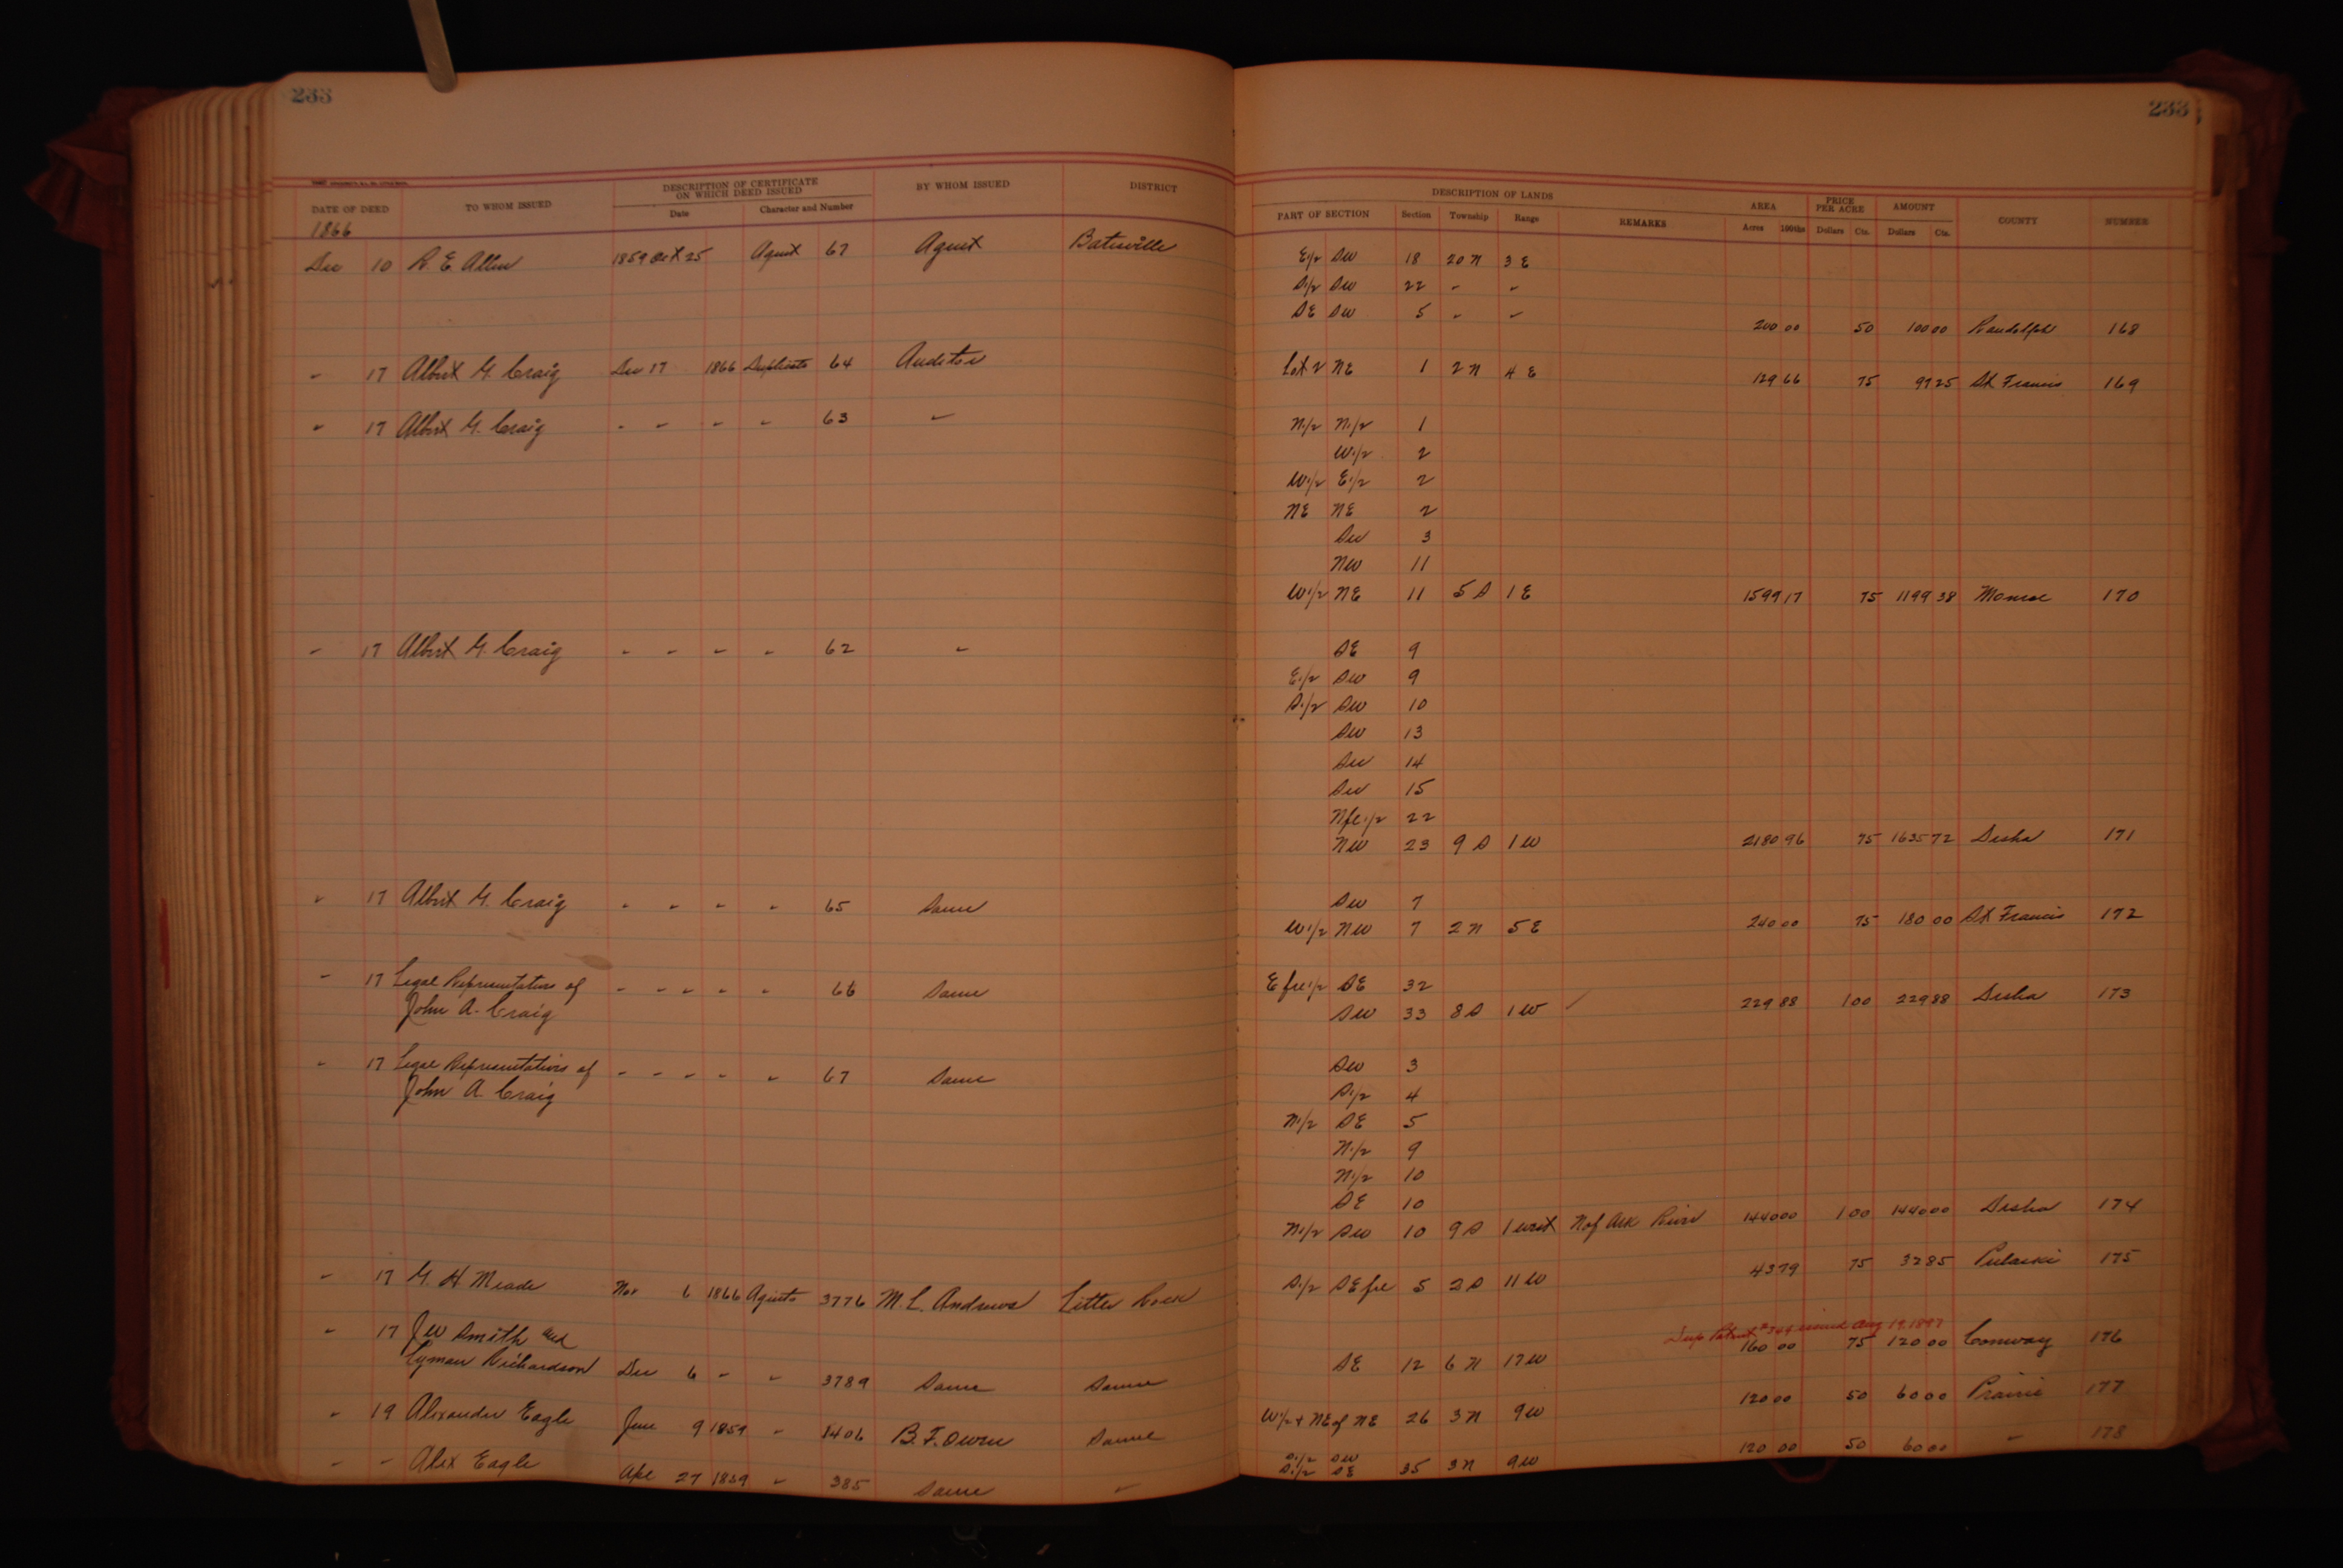 233 233
DESCRIPTION OF CERTIFICATE ON WHICH DEED ISSUED BY WHOM ISSUED DISTRICT DESCRIPTION OF LANDS AREA PRICE PER ACRE AMOUNT
DATE OF DEED TO WHOM ISSUED Date Character and Number PART OF SECTION Section Township Range REMARKS Acres 100ths Dollars Cts. Dollars Cts. COUNTY NUMBER
1866
Dec 10 R. E. Allen 1859 Oct 25 Agent 67 Agent Batesville E1/2 SW 18 20 N 3 E
S1/2 SW 22 " "
SE SW 5 " " 200 00 50 100 00 Randolph 168
" 17 Albert G. Craig Dec 17 1866 Duplicate 64 Auditor Lot 2 NE 1 2 N 4 E 129 66 75 97 25 St Francis 169
" 17 Albert G. Craig " " " " 63 " N1/2 N1/2 1
W1/2 2
W1/2 E1/2 2
NE NE 2
SW 3
NW 11
W1/2 NE 11 5 S 1 E 1599 17 75 1199 38 Monroe 170
" 17 Albert G. Craig " " " " 62 " SE 9
E1/2 SW 9
S1/2 SW 10
SW 13
SW 14
SW 15
N frl 1/2 22
NW 23 9 S 1 W 2180 96 75 1635 72 Desha 171
" 17 Albert G. Craig " " " " 65 Same SW 7
W1/2 NW 7 2 N 5 E 240 00 75 180 00 St Francis 172
" 17 Legal Representatives of " " " " " 66 Same E frl 1/2 SE 32
John A. Craig SW 33 8 S 1 W 229 88 1 00 229 88 Desha 173
" 17 Legal Representatives of " " " " " 67 Same SW 3
John A. Craig S1/2 4
N1/2 SE 5
N1/2 9
N1/2 10
SE 10
N1/2 SW 10 9 S 1 West N of Ark River 1440 00 1 00 1440 00 Desha 174
" 17 G. H Meade Nov 6 1866 Agents 3776 M. L. Andrews Little Rock S1/2 SE frl 5 2 S 11 W 43 79 75 32 85 Pulaski 175
Dup Patent #344 issued Aug 19, 1897
" 17 J W Smith and
Lyman Richardson Dec 6 " " 3789 Same Same SE 12 6 N 17 W 160 00 75 120 00 Conway 176
" 19 Alexander Eagle June 9 1859 " 1406 B. F. Owen Same W1/2 + NE of NE 26 3 N 9 W 120 00 50 60 00 Prairie 177
" " Alex Eagle Apl 27 1859 " 385 Same " S1/2 SW
S1/2 SE 35 3 N 9 W 120 00 50 60 00 " 178